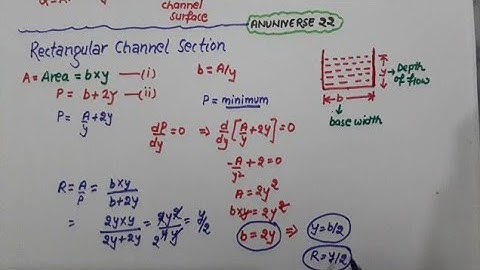 channel
surface
ANUNIVERSE 22
Rectangular Channel Section
A = Area = b×y —(i)
P = b+2y —(ii)
b = A/y
P = minimum
P = A/y + 2y
dP/dy = 0 ⇒ d/dy [A/y + 2y] = 0
-A/y² + 2 = 0
A = 2y²
b×y = 2y²
b = 2y ⇒ y = b/2
R = y/2
R = A/P = b×y/b+2y
= 2y×y/2y+2y = 2y²/4y = y/2
y → Depth of flow
b
base width